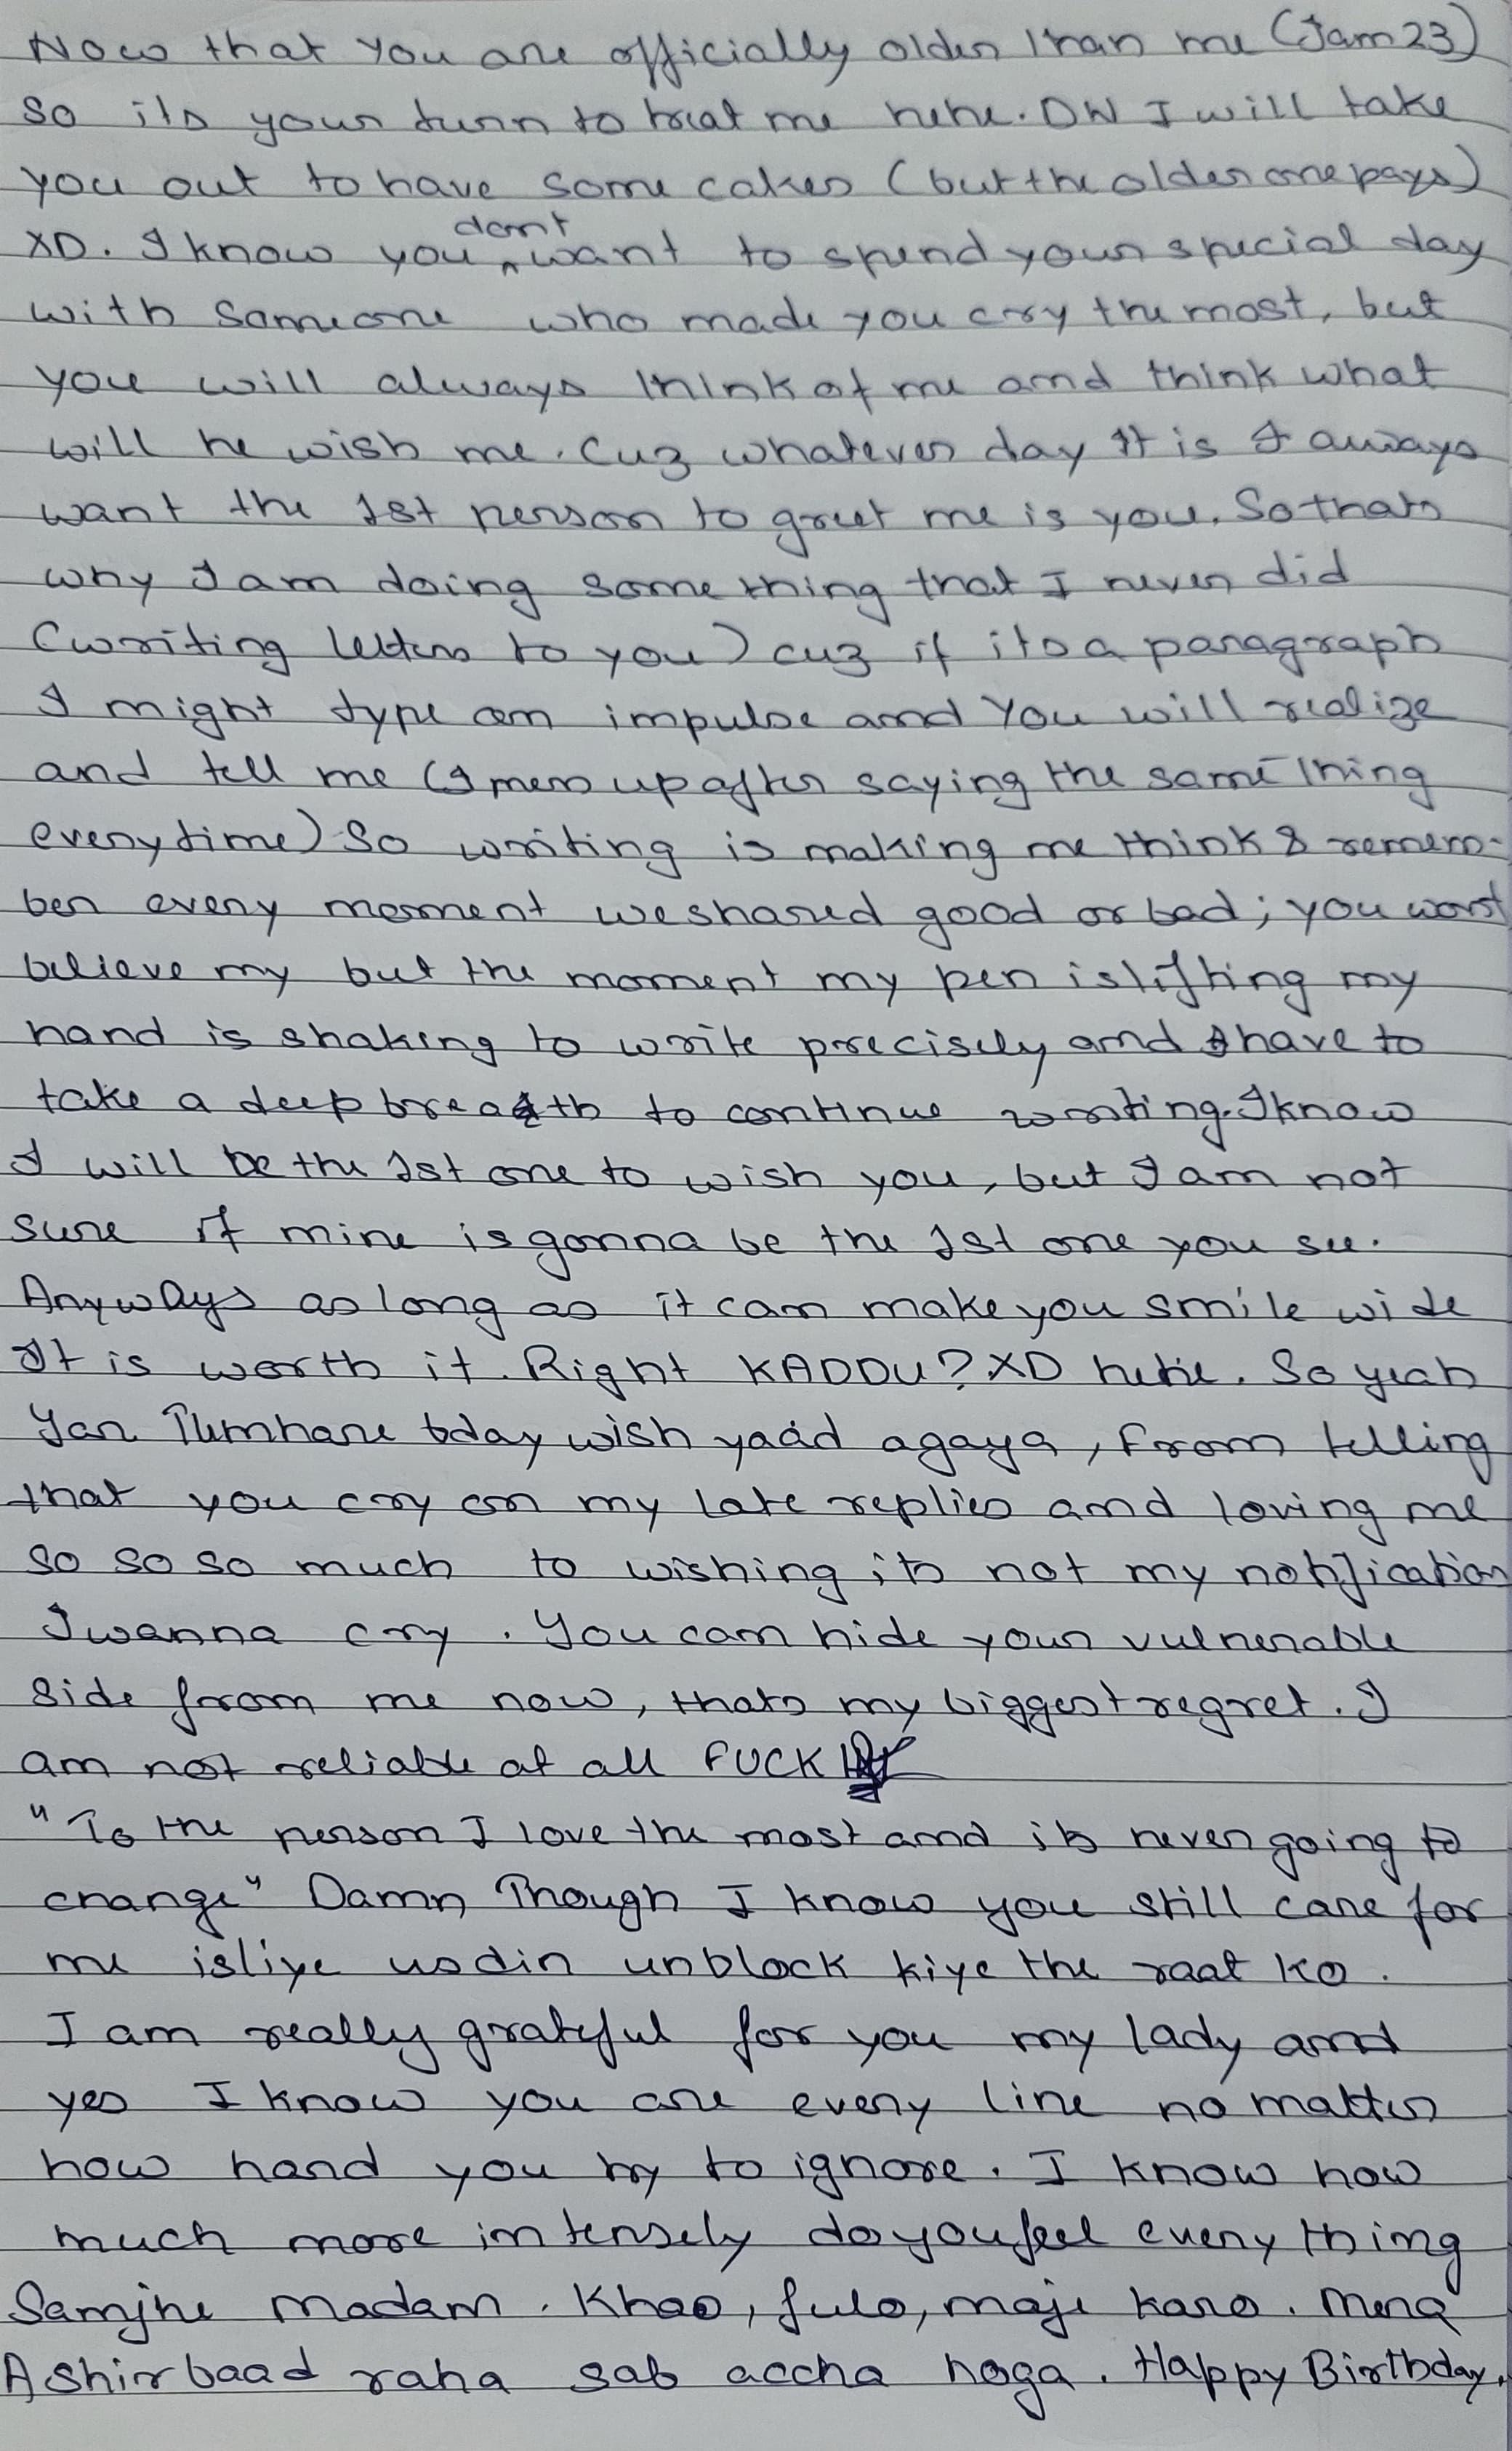 Now that you are officially older than me (Jam 23)
so its your turn to treat me hehe. DW I will take
you out to have some cakes (but the older one pays)
XD. I know you dont want to spend your special day
with someone who made you cry the most, but
you will always think of me and think what
will he wish me. Cuz whatever day It is I always
want the 1st person to greet me is you. So thats
why I am doing something that I never did
(writing letters to you) cuz if its a paragraph
I might type on impulse and you will realize
and tell me (I mess up after saying the same thing
every time) So writing is making me think & remem-
ber every moment we shared good or bad; you wont
believe my but the moment my pen is lifting my
hand is shaking to write precisely and I have to
take a deep breath to continue writing. I know
I will be the 1st one to wish you, but I am not
sure if mine is gonna be the 1st one you see.
Anyways as long as it can make you smile wide
It is worth it. Right KADDU? XD hehe. So yeah
Yar Tumhare bday wish yaad agaya, From telling
that you cry on my late replies and loving me
so so so much to wishing its not my notification
I wanna cry. You can hide your vulnerable
side from me now, thats my biggest regret. I
am not reliable at all FUCK
"To the person I love the most and its never going to
change" Damn Though I know you still care for
me isliye usdin unblock kiye the raat ko.
I am really grateful for you my lady and
yes I know you are every line no matter
how hard you try to ignore. I know how
much more intensely do you feel every thing
Samjhe madam. Khao, fulo, maje karo. Mera
Ashirbaad raha sab accha hoga. Happy Birthday.